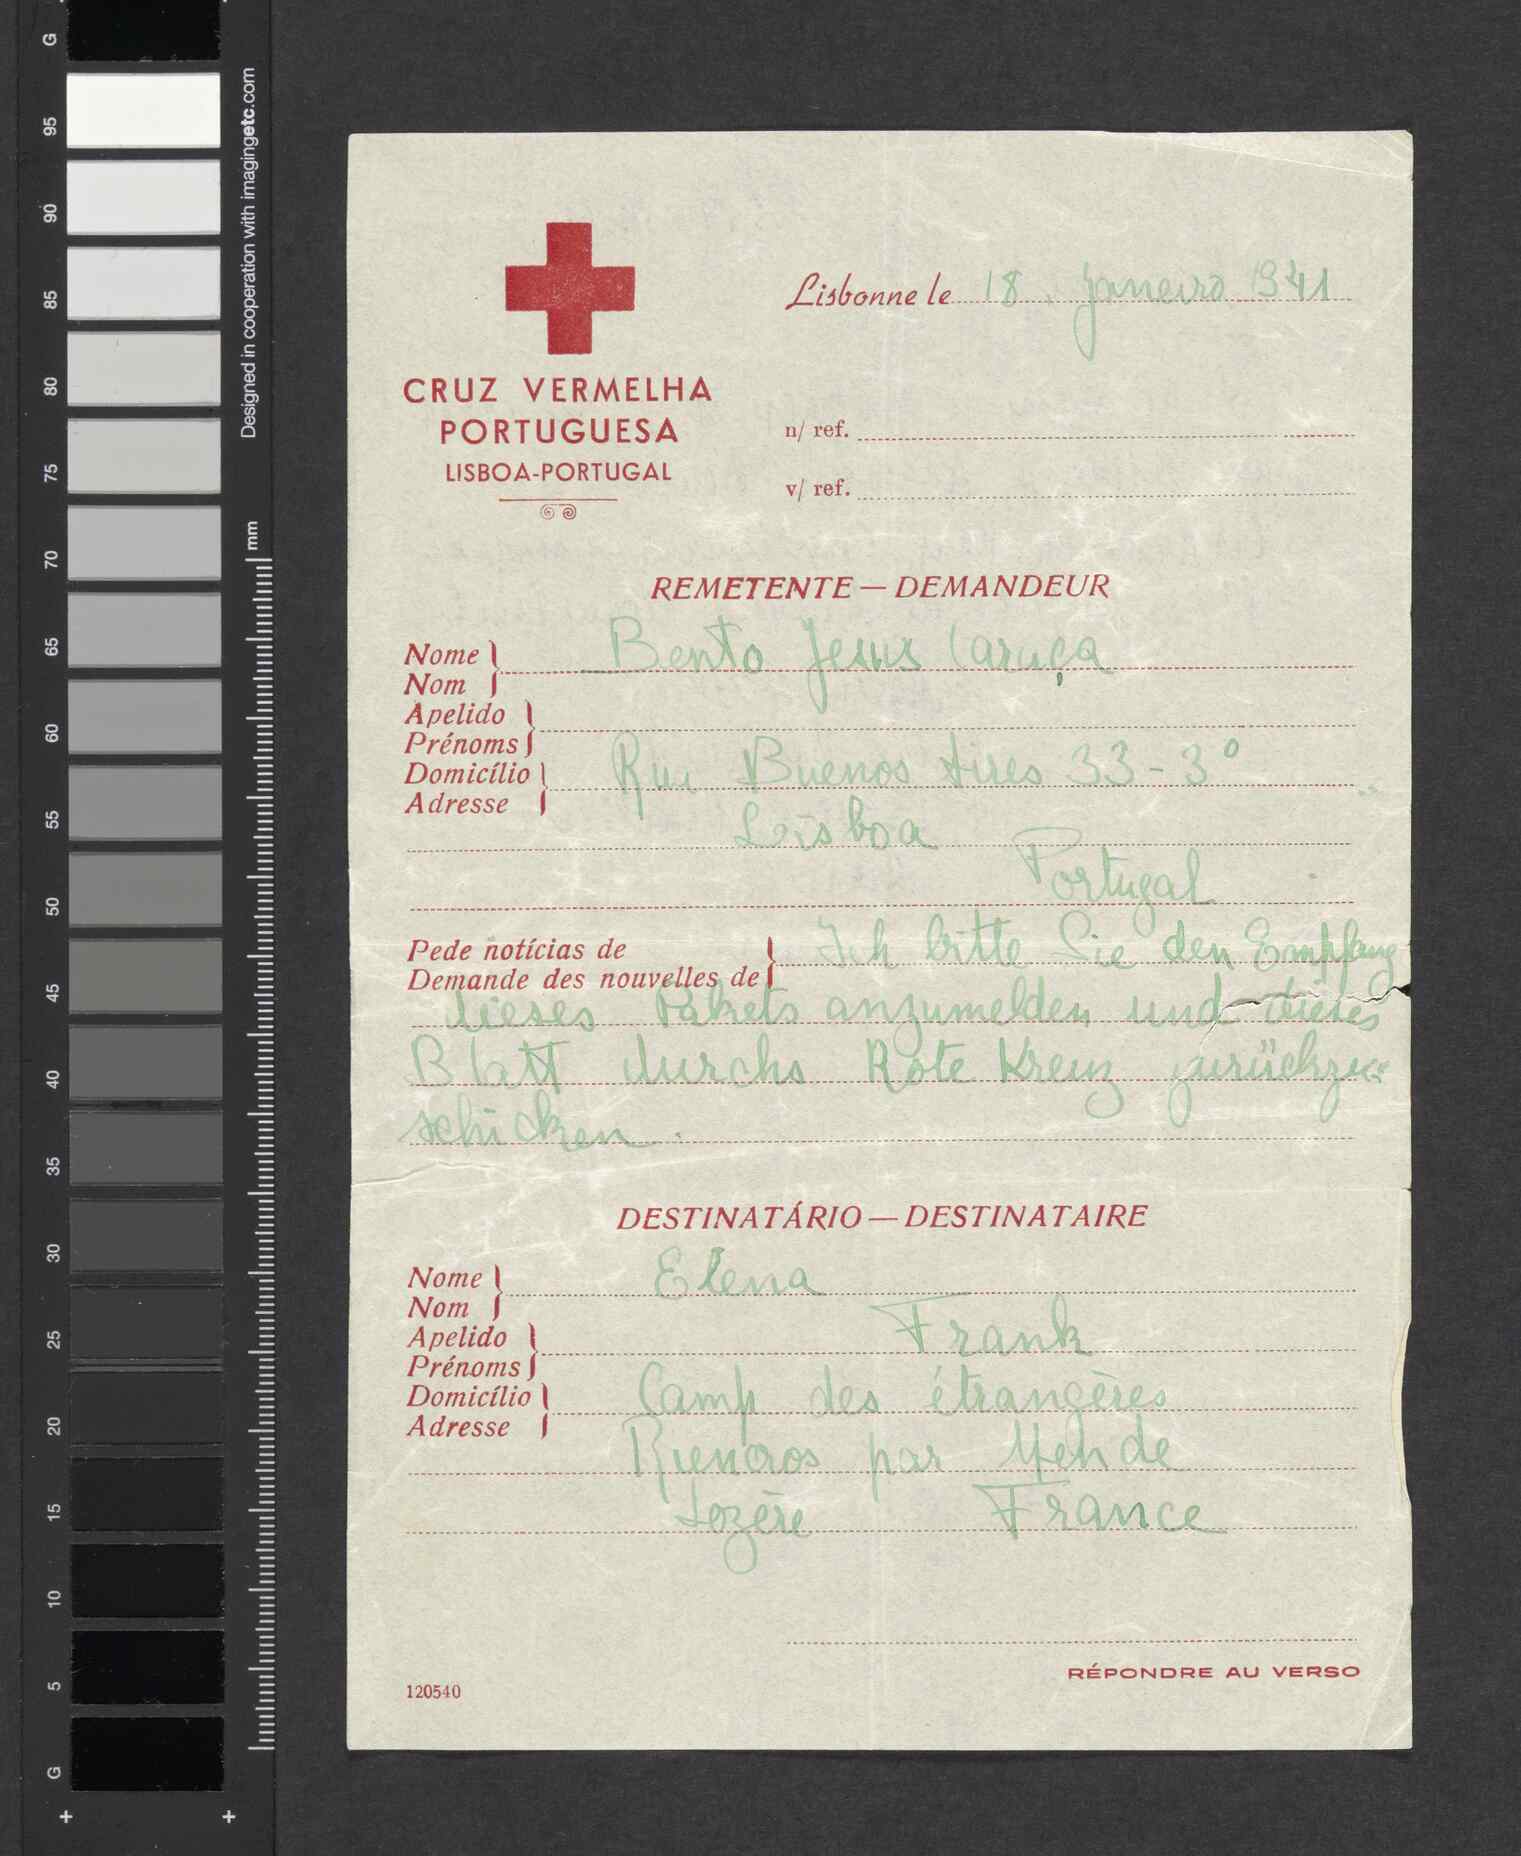 G
95
90
85
80
75
70
65
60
55
50
45
40
35
30
25
20
15
10
5
G
Designed in cooperation with imagingetc.com
mm
CRUZ VERMELHA
PORTUGUESA
LISBOA-PORTUGAL
Lisbonne le 18 Janeiro 1941
n/ ref.
v/ ref.
REMETENTE — DEMANDEUR
Nome Bento Jesus Caraça
Nom
Apelido
Prénoms
Domicílio Rua Buenos Aires 33-3º
Adresse
Lisboa
Portugal
Pede notícias de Ich bitte Sie den Empfang
Demande des nouvelles de
dieses Pakets anzumelden und dieses
Blatt durchs Rote Kreuz zurückzu=
schicken.
DESTINATÁRIO — DESTINATAIRE
Nome Elena
Nom
Apelido Frank
Prénoms
Domicílio Camp des étrangères
Adresse
Rieucros par Mende
Lozère France
RÉPONDRE AU VERSO
120540